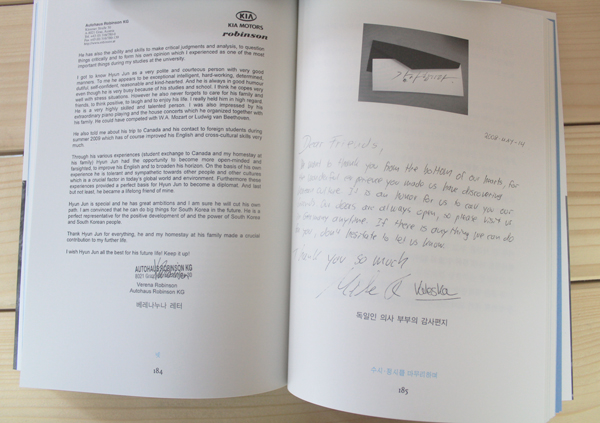 Autohaus Robinson KG
KIA
KIA MOTORS
robinson
He has also the ability and skills to make critical judgments and analysis, to question
things critically and to form his own opinion which I experienced as one of the most
important things during my studies at the university.
I got to know Hyun Jun as a very polite and courteous person with very good
manners. To me he appears to be exceptional intelligent, hard-working, determined,
dutiful, self-confident, reasonable and kind-hearted. And he is always in good humour
even though he is very busy because of his studies and school. I think he copes very
well with stress situations. However he also never forgets to care for his family and
friends, to think positive, to laugh and to enjoy his life. I really held him in high regard.
He is a very highly skilled and talented person. I was also impressed by his
extraordinary piano-playing and the house concerts which he organized together with
his family. He could have competed with W.A. Mozart or Ludwig van Beethoven.
He also told me about his trip to Canada and his contact to foreign students during
summer 2009 which has of course improved his English and cross-cultural skills very
much.
Through his various experiences (student exchange to Canada and my homestay at
his family) Hyun Jun had the opportunity to become more open-minded and
farsighted, to improve his English and to broaden his horizon. On the basis of his own
experience he is tolerant and sympathetic towards other people and other cultures
which is a crucial factor in today's global world and environment. Furthermore these
experiences provided a perfect basis for Hyun Jun to become a diplomat. And last
but not least, he became a lifelong friend of mine.
Hyun Jun is special and he has great ambitions and I am sure he will cut his own
path. I am convinced that he can do big things for South Korea in the future. He is a
perfect representative for the positive development of and the power of South Korea
and South Korean people.
Thank you Hyun Jun for everything, he and my homestay at his family made a crucial
contribution to my further life.
I wish Hyun Jun all the best for his future life! Keep it up!
AUTOHAUS ROBINSON KG
Verena Robinson
Autohaus Robinson KG
베레나누나 레터
184
Dear Friends,
We want to thank you from the bottom of our hearts, for
you made us have discovering
It is an honor for us to call you our
friends. Our doors are always open, so please visit us
in Germany anytime. If there is anything we can do
for you, don't hesitate to let us know.
Thank you so much
Valeska
독일인 의사 부부의 감사편지
185